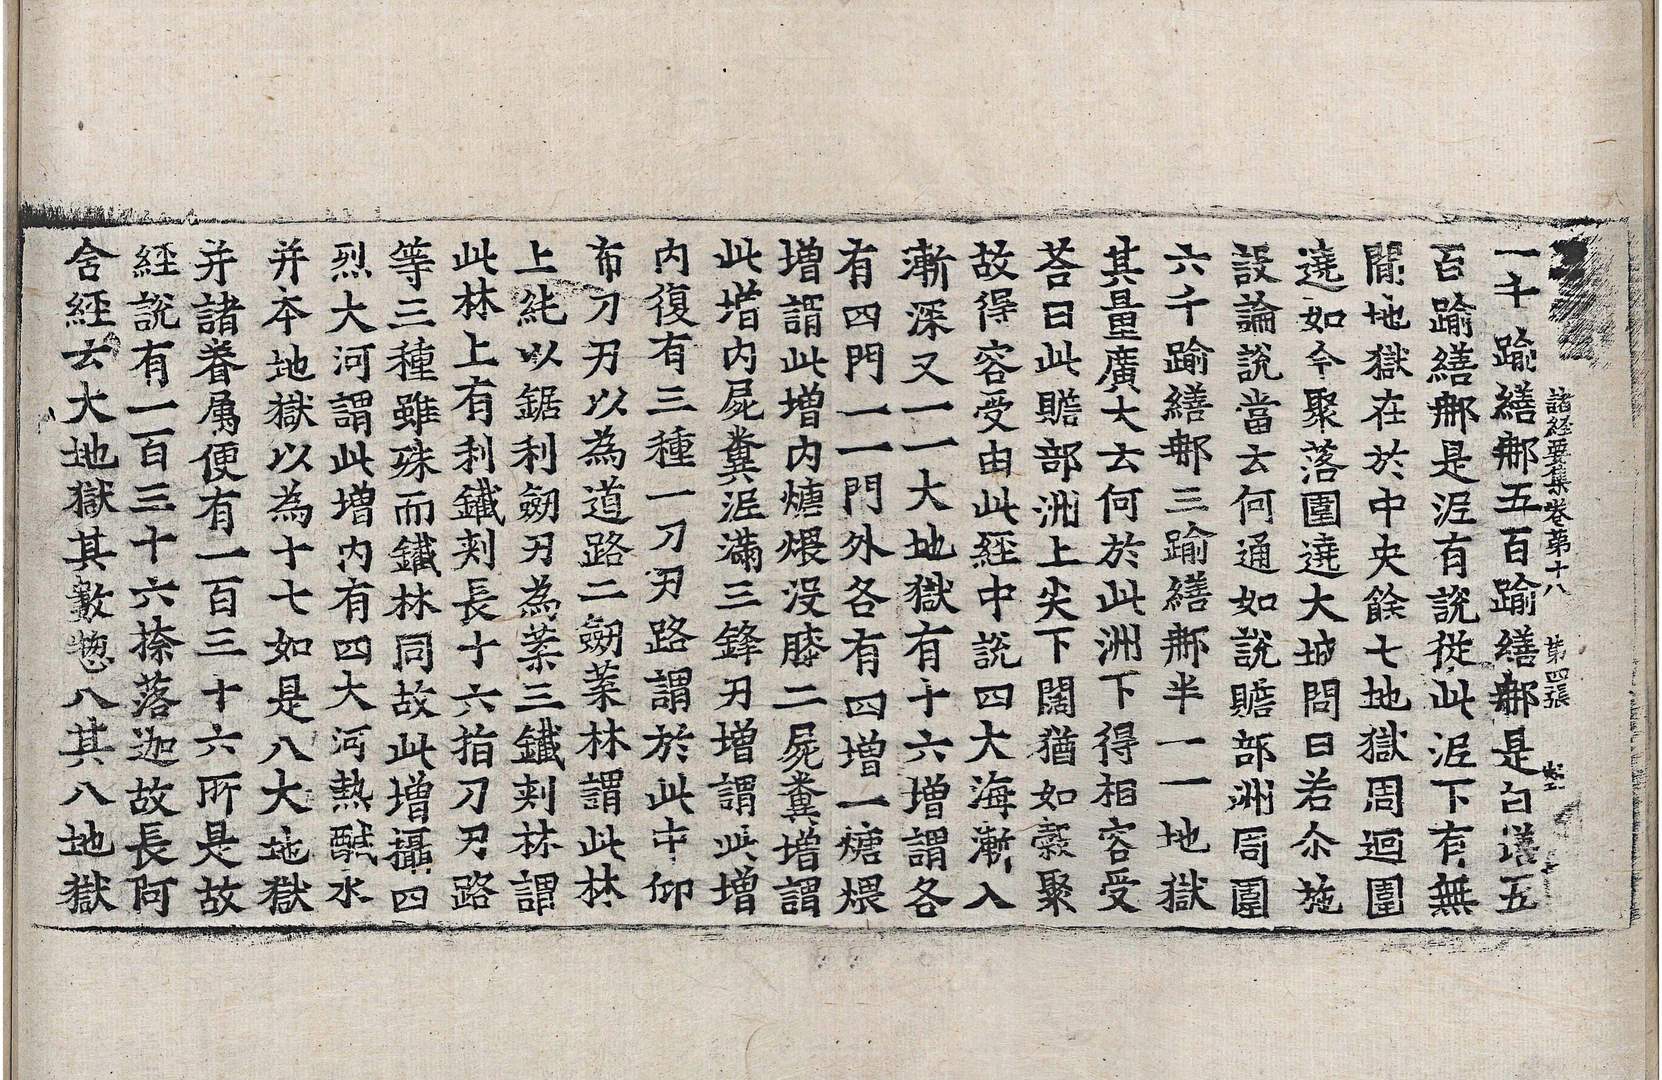 諸經要集卷第十八 第四張
一千踰繕郍五百踰繕郍是白墡五
百踰繕郍是泥有說從此泥下有無
閒地獄在於中央餘七地獄周迴圍
遶如今聚落圍遶大城問曰若尒施
設論說當云何通如說贍部洲周圍
六千踰繕郍三踰繕郍半一一地獄
其量廣大云何於此洲下得相容受
荅曰此贍部洲上尖下闊猶如穀聚
故得容受由此經中說四大海漸入
漸深又一一大地獄有十六增謂各
有四門一一門外各有四增一煻煨
增謂此增內煻煨沒膝二屍糞增謂
此增內屍糞泥滿三鋒刃增謂此增
內復有三種一刀刃路謂於此中仰
布刀刃以為道路二劒葉林謂此林
上純以鋸利劒刃為葉三鐵刾林謂
此林上有利鐵刾長十六指刀刃路
等三種雖殊而鐵林同故此增攝四
烈大河謂此增內有四大河熱鹹水
并本地獄以為十七如是八大地獄
并諸眷属便有一百三十六所是故
經說有一百三十六捺落迦故長阿
含經云大地獄其數揔八其八地獄